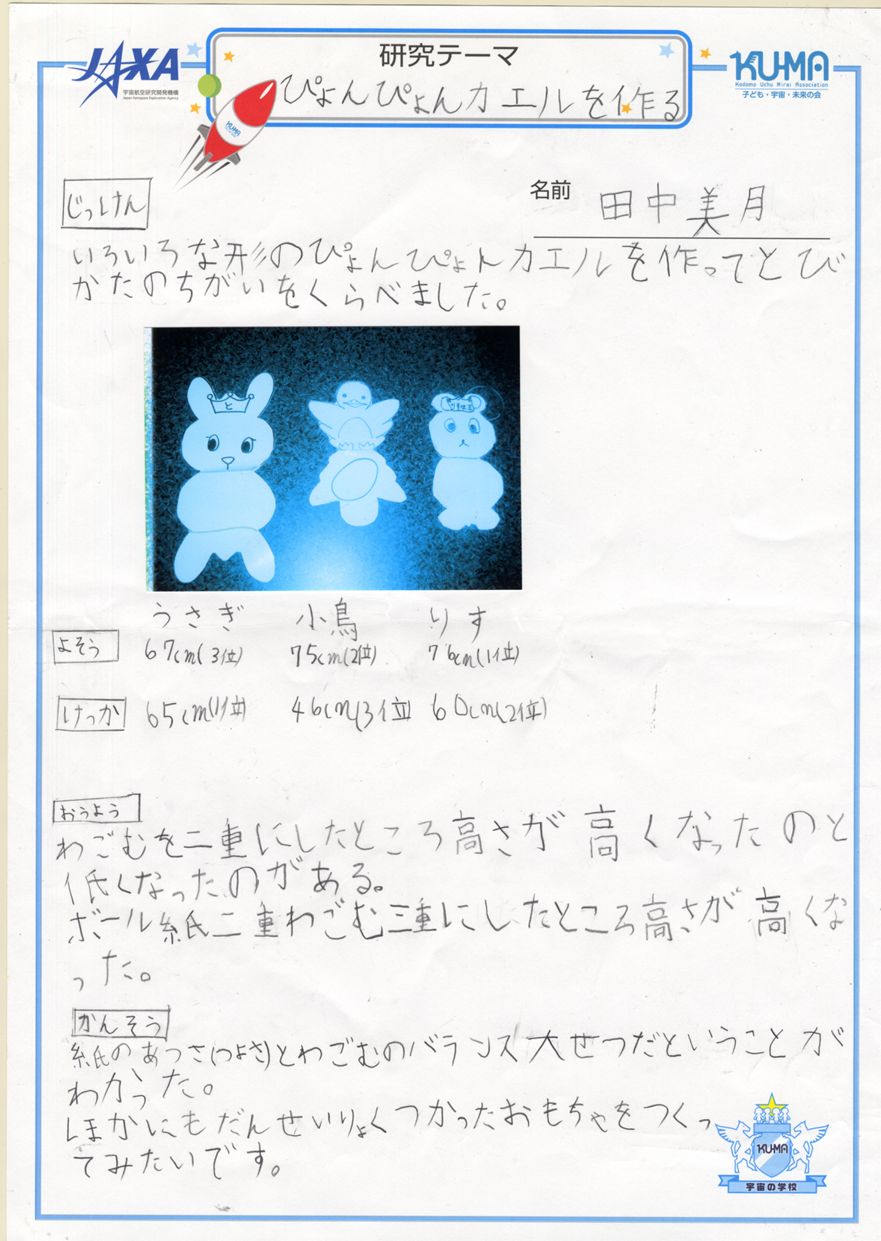 JAXA
宇宙航空研究開発機構
Japan Aerospace Exploration Agency
研究テーマ
ぴょんぴょんカエルを作る
KU-MA
Kodomo Uchu Mirai Association
子ども・宇宙・未来の会
KUMA
名前 田中美月
じっけん
いろいろな形のぴょんぴょんカエルを作ってとび
かたのちがいをくらべました。
と
うさぎ 小鳥 りす
よそう 67cm(3位) 75cm(2位) 76cm(1位)
けっか 65cm(1位) 46cm(3位) 60cm(2位)
おうよう
わごむを二重にしたところ高さが高くなったのと
低くなったのがある。
ボール紙二重わごむ三重にしたところ高さが高くな
った。
かんそう
紙のあつさ(つよさ)とわごむのバランス大せつだということが
わかった。
ほかにもだんせいりょくつかったおもちゃをつくっ
てみたいです。
KU-MA
宇宙の学校